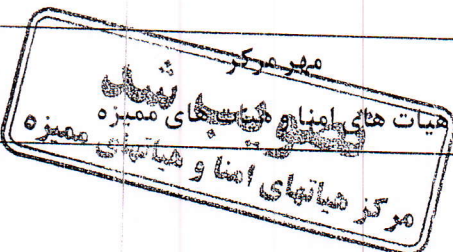 مهر مرکز
هیات های امنا و هیئت های ممیزه
تصویب شد
مرکز هیاتهای امنا و هیاتهای ممیزه